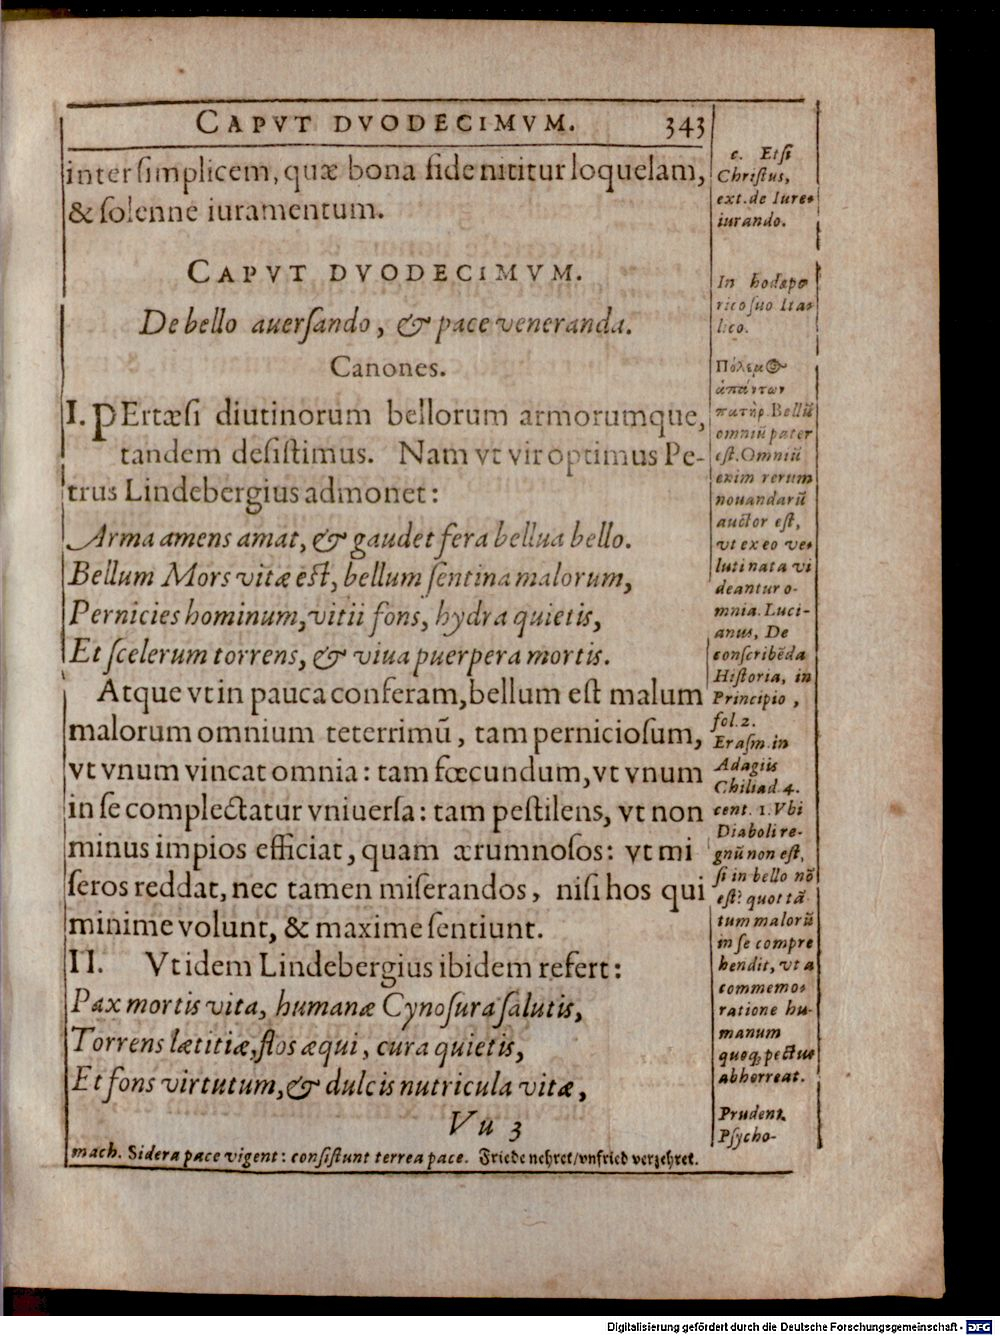 CAPVT DVODECIMVM. 343
inter ſimplicem, quæ bona fide nititur loquelam,
& ſolenne iuramentum.
CAPVT DVODECIMVM.
De bello auerſando, & pace veneranda.
Canones.
I. PErtæſi diutinorum bellorum armorumque,
tandem deſiſtimus. Nam vt vir optimus Pe-
trus Lindebergius admonet:
Arma amens amat, & gaudet fera bellua bello.
Bellum Mors vitæ eſt, bellum ſentina malorum,
Pernicies hominum, vitii fons, hydra quietis,
Et ſcelerum torrens, & viua puerpera mortis.
Atque vt in pauca conferam, bellum eſt malum
malorum omnium teterrimũ, tam pernicioſum,
vt vnum vincat omnia: tam fœcundum, vt vnum
in ſe complectatur vniuerſa: tam peſtilens, vt non
minus impios efficiat, quam ærumnoſos: vt mi
ſeros reddat, nec tamen miſerandos, niſi hos qui
minime volunt, & maxime ſentiunt.
II. Vt idem Lindebergius ibidem refert:
Pax mortis vita, humanæ Cynoſura ſalutis,
Torrens lætitiæ, flos æqui, cura quietis,
Et fons virtutum, & dulcis nutricula vitæ,
Vu 3
c. Etſi
Chriſtus,
ext. de Iure-
iurando.
In hodæpo
rico ſuo Ita-
lico.
Πόλεμος
ἁπάντων
πατὴρ. Bellũ
omniũ pater
eſt. Omniũ
enim rerum
nouandarũ
auctor eſt,
vt ex eo ve-
luti nata vi
deantur o-
mnia. Luci-
anus, De
conſcribẽda
Hiſtoria, in
Principio,
fol. 2.
Eraſm. in
Adagiis
Chiliad. 4.
cent. 1. Vbi
Diaboli re-
gnũ non eſt,
ſi in bello nõ
eſt? quot tã
tum malorũ
in ſe compre
hendit, vt a
commemo-
ratione hu-
manum
quoq; pectus
abhorreat.
Prudent.
Pſycho-
mach. Sidera pace vigent: conſiſtunt terrea pace. Friede nehret/vnfried verzehret.
Digitalisierung gefördert durch die Deutsche Forschungsgemeinschaft - DFG